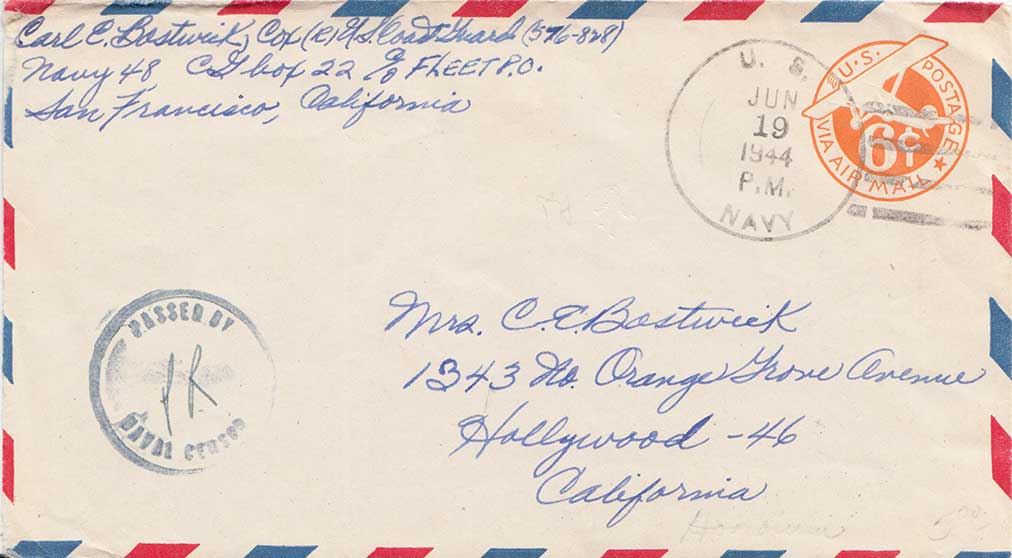 Carl E. Bostwick, Cox (R) U.S. Coast Guard (576-828)
Navy 48 CG box 22 c/o FLEET P.O.
San Francisco, California
U. S.
JUN
19
1944
P.M.
NAVY
U.S. POSTAGE
6¢
VIA AIR MAIL
PASSED BY
NAVAL CENSOR
Mrs. C.E. Bostwick
1343 No. Orange Grove Avenue
Hollywood -46
California